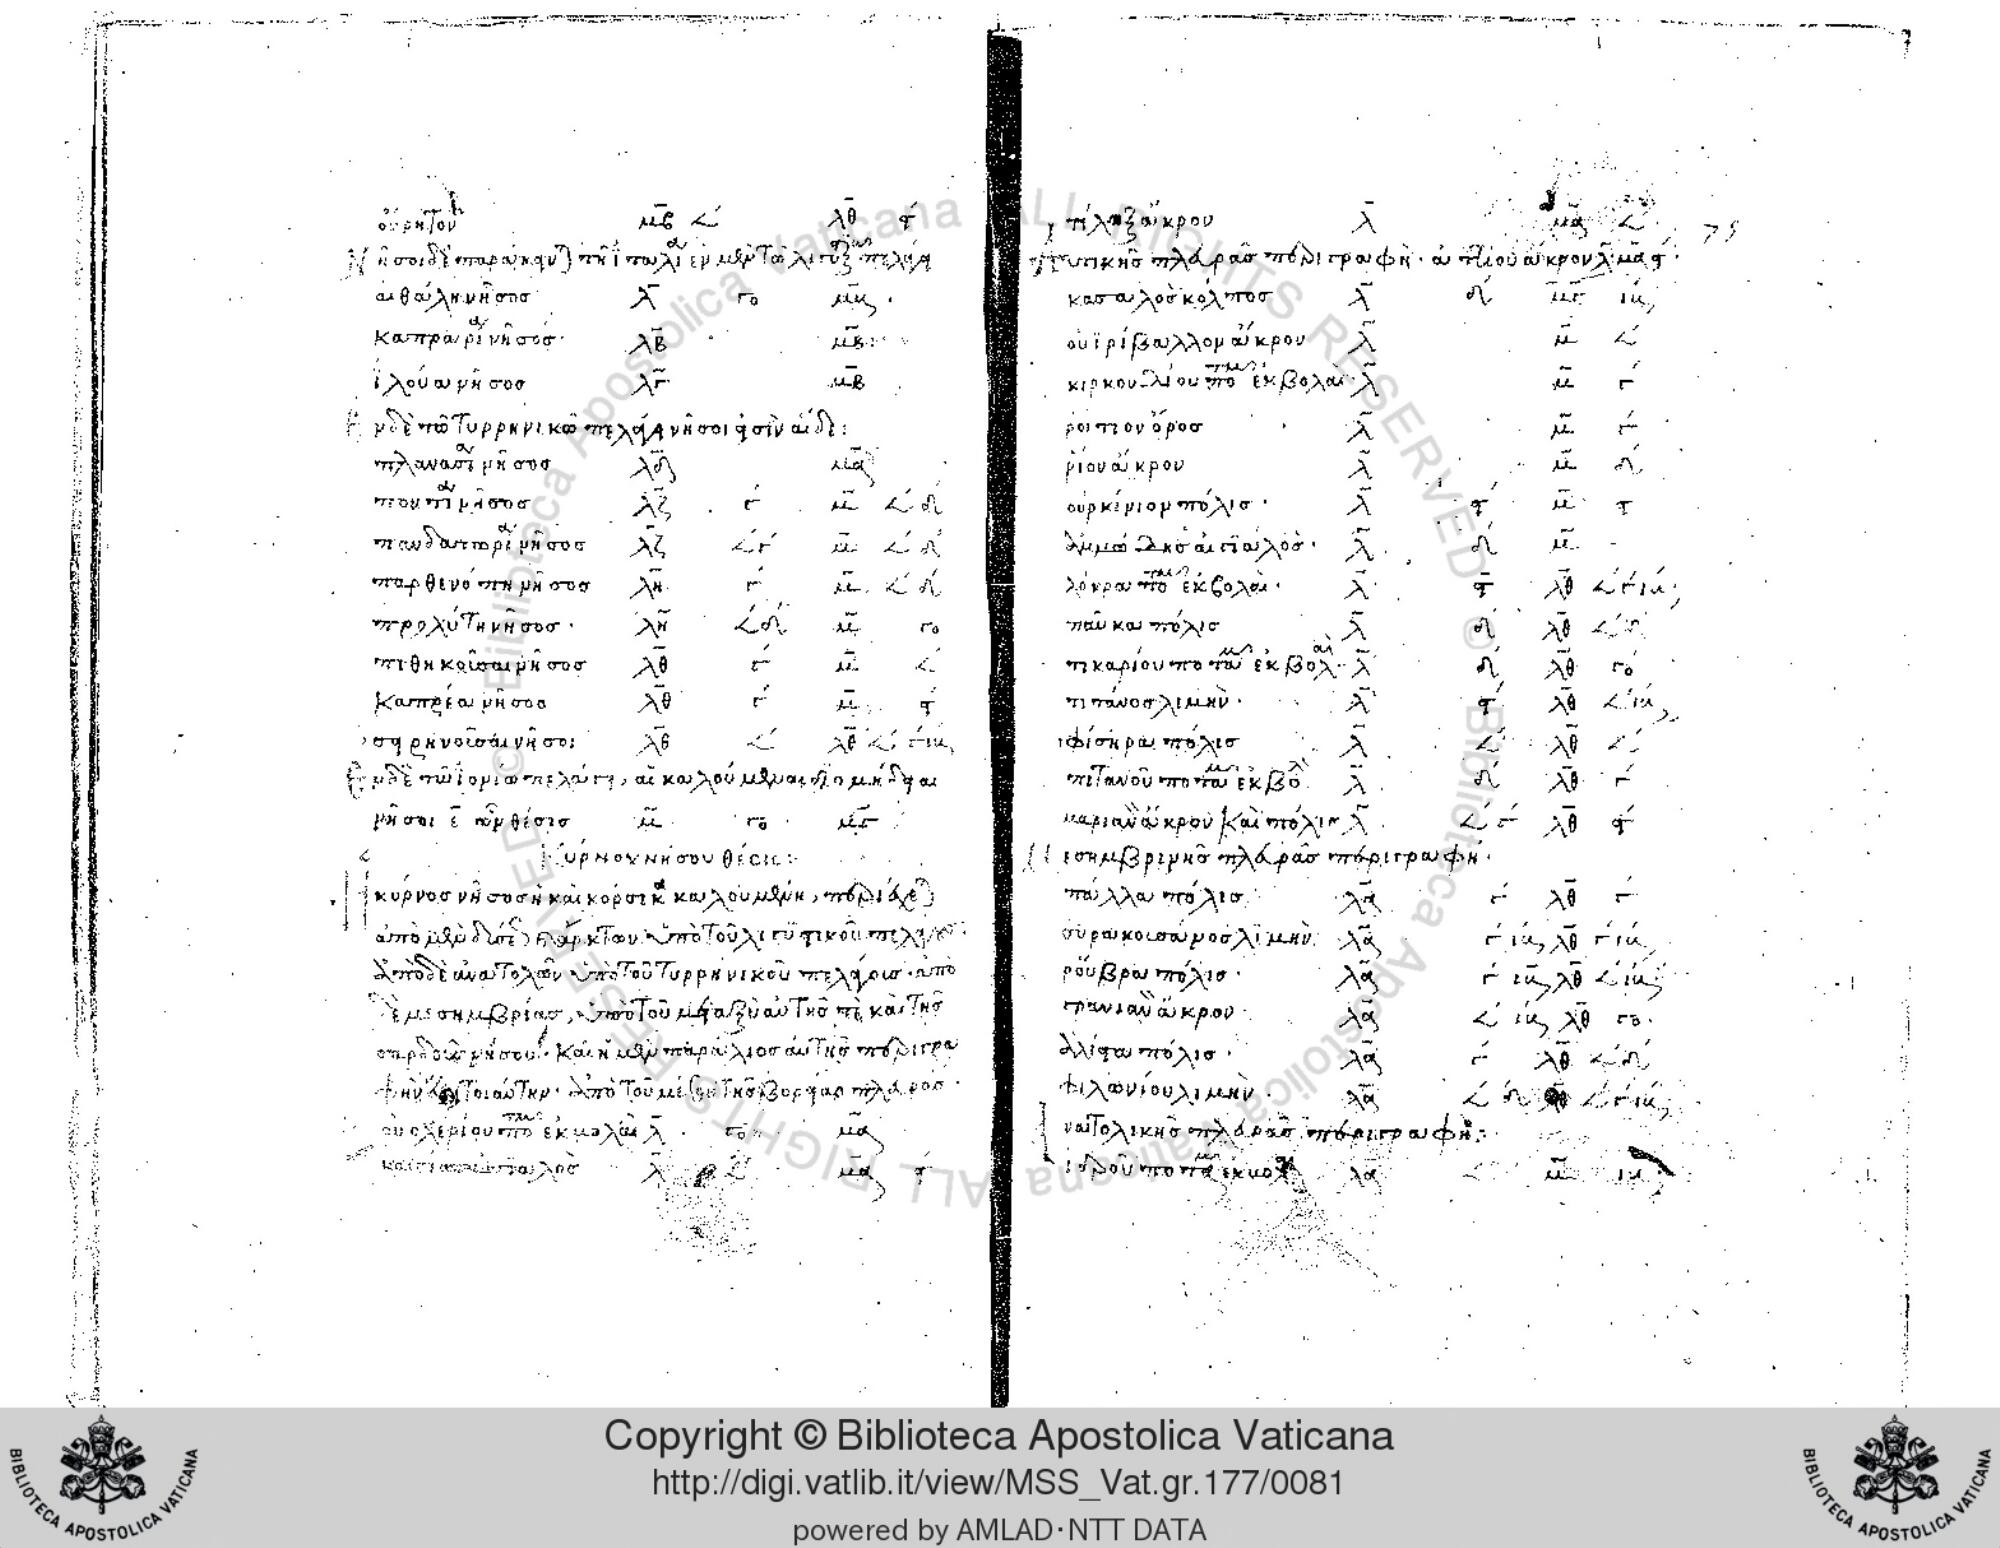 οὔρητον μ̅β̅ 𐅵 λ̅θ̅ ϛ
Νῆσοι δὲ παράκεινται τῇ ἰταλίᾳ ἐν μὲν τῷ λιγυστικῷ πελάγει
αἰθάλη νῆσος λ̅ γο μ̅α̅
καπραρία νῆσος λ̅β̅ μ̅β̅
ἰλούα νῆσος λ̅γ̅ μ̅β̅
Ἐν δὲ τῷ τυρρηνικῷ πελάγει νῆσοι εἰσὶν αἵδε:
πλανασία νῆσος λ̅δ̅ μ̅α̅
ποντία νῆσος λ̅ζ̅ γ μ̅ 𐅵 δ
πανδατωρία νῆσος λ̅ζ̅ 𐅵 γ μ̅ 𐅵 δ
παρθενόπη νῆσος λ̅η̅ γ μ̅ 𐅵 δ
προχύτη νῆσος λ̅η̅ 𐅵 δ μ̅ γο
πιθηκοῦσαι νῆσος λ̅θ̅ γ μ̅ 𐅵
καπρέα νῆσος λ̅θ̅ γ μ̅ ϛ
σειρηνοῦσαι νῆσοι λ̅θ̅ 𐅵 λ̅θ̅ 𐅵 γ ιβ
Ἐν δὲ τῷ ἰονίῳ πελάγει, αἱ καλούμεναι διομήδειαι
νῆσοι ε̅ ὧν θέσις μ̅ γο μ̅γ̅
Κύρνου νήσου θέσις:
κύρνος νῆσος ἡ καὶ κόρσικα καλουμένη, περιέχεται
ἀπὸ μὲν δύσεως καὶ ἄρκτων ὑπὸ τοῦ λιγυστικοῦ πελάγους
ἀπὸ δὲ ἀνατολῶν ὑπὸ τοῦ τυρρηνικοῦ πελάγους. ἀπὸ
δὲ μεσημβρίας, ὑπὸ τοῦ μεταξὺ αὐτῆς τε καὶ τῆς
σαρδοῦς νήσου. καὶ ἡ μὲν παράλιος αὐτῆς περιγρα
φὴν ἔχει τοιαύτην. ἀπὸ τοῦ μέσου τῆς βορείας πλευρᾶς.
οὐολερίου ποτ ἐκβολαὶ λ̅ γο μ̅α̅
καισίας αἰγιαλὸς λ̅ 𐅵 μ̅α̅ ϛ
τίλοξ ἄκρον λ̅ μ̅α̅ 𐅵
75
Δυτικῆς πλευρᾶς περιγραφή. ἀττίου ἄκρον λ̅ μ̅α̅ ϛ
κασαλὸς κόλπος λ̅ δ μ̅ γ ιβ
οὐιρίβαλλον ἄκρον λ̅ μ̅ 𐅵
κιρκιδίου ποτ ἐκβολαὶ λ̅ μ̅ γ
ροίτιον ὄρος λ̅ μ̅ γ
ρίον ἄκρον λ̅ μ̅ δ
οὐρκίνιον πόλις λ̅ ϛ μ̅ ϛ
ἀμμώδης αἰγιαλὸς λ̅ δ μ̅
λόκρα ποτ ἐκβολαί λ̅ ϛ λ̅θ̅ 𐅵 γ ιβ
παῦκα πόλις λ̅ δ λ̅θ̅ 𐅵 δ
τικαρίου ποταμ ἐκβολαὶ λ̅ δ λ̅θ̅ γο
τιτάνος λιμήν λ̅ ϛ λ̅θ̅ 𐅵 ιβ
φίσηρα πόλις λ̅ 𐅵 λ̅θ̅ 𐅵
πιτανοῦ ποταμ ἐκβολ λ̅ δ λ̅θ̅ γ
μαριανὸν ἄκρον καὶ πόλις λ̅ 𐅵 γ λ̅θ̅ ϛ
Μεσημβρινῆς πλευρᾶς περιγραφή.
πάλλα πόλις λ̅α̅ γ λ̅θ̅ γ
συρακουσάνος λιμὴν λ̅α̅ γ ιβ λ̅θ̅ γ ιβ
ροῦβρα πόλις λ̅α̅ γ ιβ λ̅θ̅ 𐅵 ιβ
γρανιανὸν ἄκρον λ̅α̅ 𐅵 ιβ λ̅θ̅ γο
ἀλίστα πόλις λ̅α̅ γ λ̅θ̅ 𐅵 δ
φιλωνίου λιμήν λ̅α̅ 𐅵 λ̅θ̅ 𐅵 γ ιβ
Ἀνατολικῆς πλευρᾶς περιγραφή:
ἱεροῦ ποταμ ἐκβολ λ̅α̅ μ̅ ιβ
Copyright © Biblioteca Apostolica Vaticana
http://digi.vatlib.it/view/MSS_Vat.gr.177/0081
powered by AMLAD·NTT DATA
BIBLIOTECA APOSTOLICA VATICANA
BIBLIOTECA APOSTOLICA VATICANA
Biblioteca Apostolica Vaticana ALL RIGHTS RESERVED © Biblioteca Apostolica Vaticana ALL RIGHTS RESERVED ©